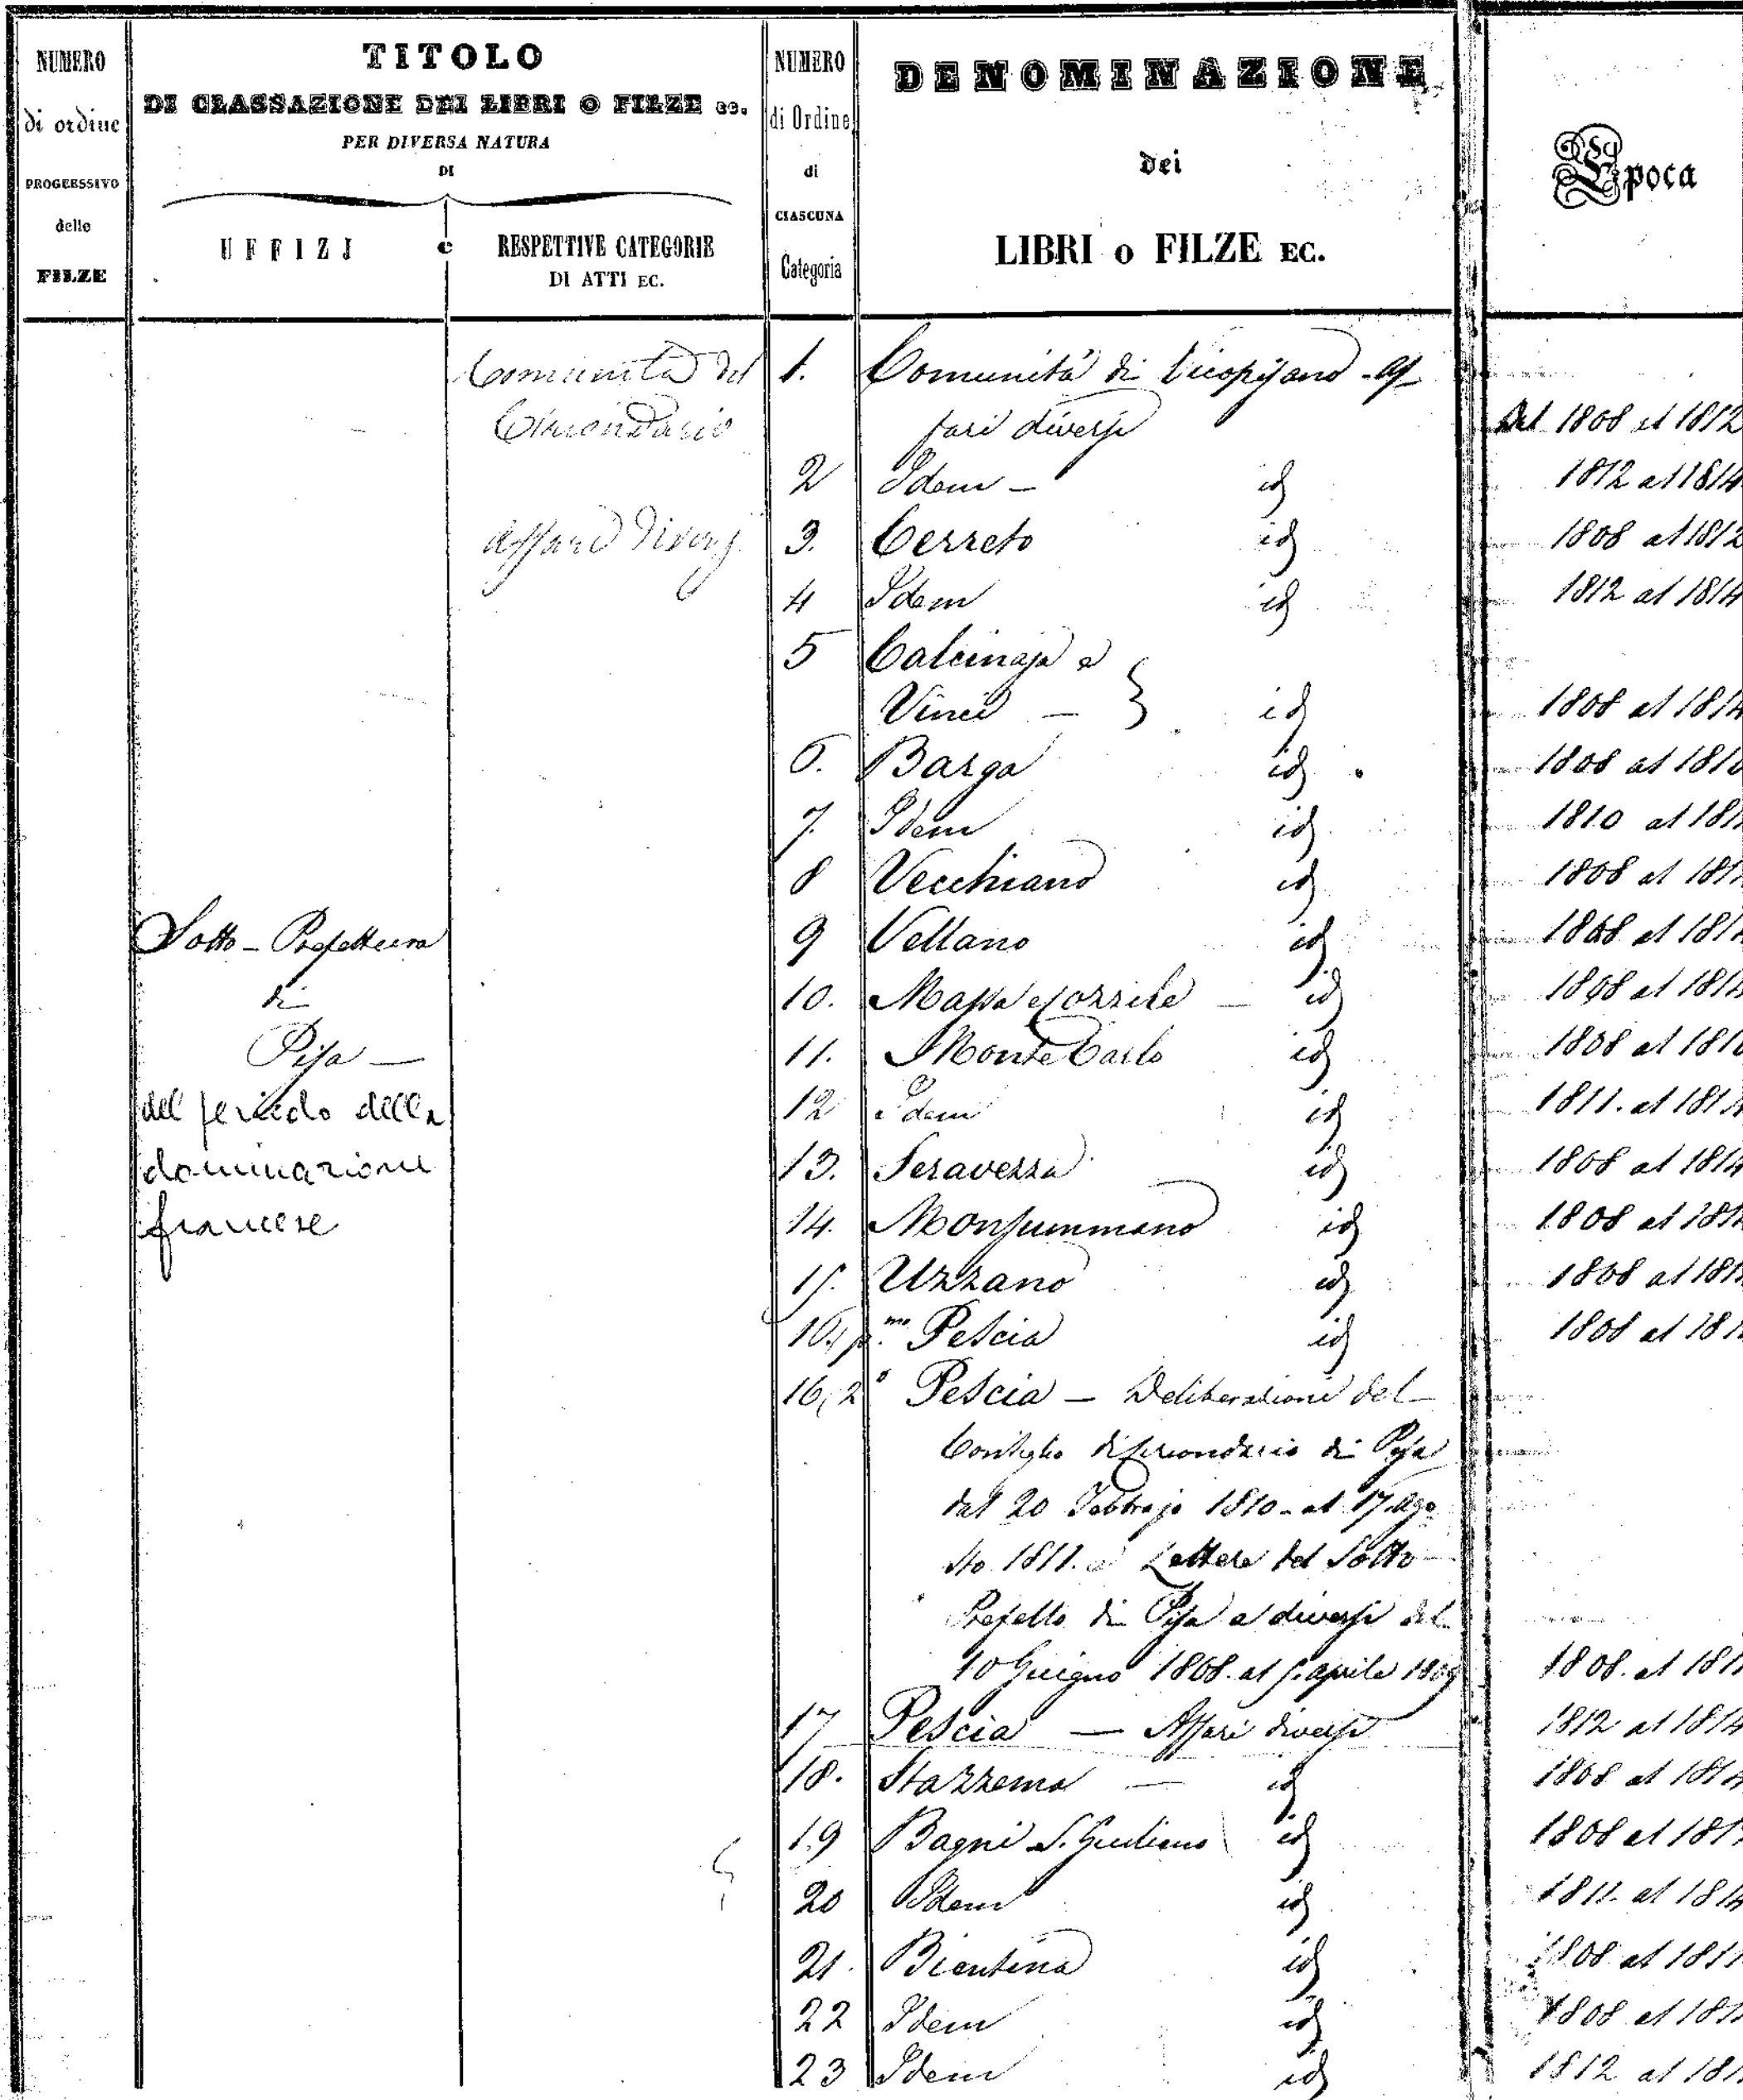 NUMERO
di ordine
PROGERSSIVO
delle
FILZE
TITOLO
DI CLASSAZIONE DEI LIBRI O FILZE ec.
PER DIVERSA NATURA
DI
UFFIZJ e RESPETTIVE CATEGORIE
DI ATTI EC.
NUMERO
di Ordine
di
CIASCUNA
Categoria
DENOMINAZIONE
dei
LIBRI o FILZE EC.
Epoca
Comunità del
Circondario
Affari diversi
Sotto-Prefettura
di
Pisa —
del periodo della
dominazione
francese
1. Comunità di Vicopisano - Af
fari diversi Dal 1808 al 1812
2 Idem - id 1812 al 1814
3. Cerreto id 1808 al 1812
4 Idem id 1812 al 1814
5 Calcinaja e
Vinci — } id 1808 al 1814
6. Barga id 1808 al 1810
7. Idem id 1810 al 181
8 Vecchiano id 1808 al 181
9 Vellano id 1808 al 181
10. Massa e Cozzile — id 1808 al 1814
11. Monte Carlo id 1808 al 1810
12 Idem id 1811. al 181
13. Seravezza id 1808 al 1814
14. Monsummano id 1808 al 181
15. Uzzano id 1808 al 181
16, p.mo Pescia id 1808 al 181
16, 2° Pescia — Deliberazioni del
Consiglio di Circondario di Pisa
dal 20 Febbrajo 1810 - al 17. Ago
sto 1811. e Lettere del Sotto
Prefetto di Pisa a diversi dal
10 Giugno 1808. al aprile 1809 1808. al 181
17 Pescia — Affari diversi 1812 al 1814
18. Stazzema — id 1808 al 1814
19 Bagni S. Giuliano id 1808 al 181
20 Idem id 1811. al 1814
21. Bientina id 1808 al 181
22 Idem id 1808 al 181
23 Idem id 1812 al 181